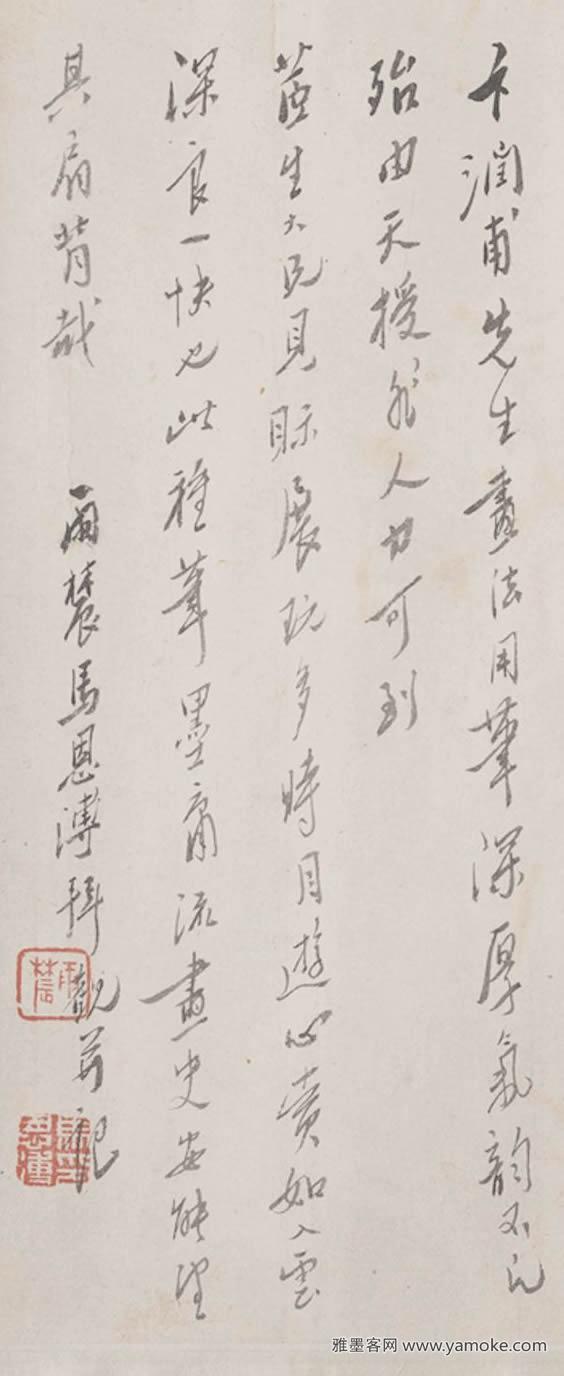 卞潤甫先生畫法用筆深厚氣韻不凡
殆由天授非人力可到
蓝生大兄見眎展玩多時目遊心賞如入雲
深良一快也此種筆墨庸流畫史安能望
其肩背哉
雨農馬恩溥拜觀並記
雨農
雅墨客网 www.yamoke.com